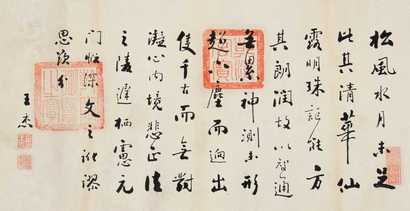 松風水月未足
比其清華仙
露明珠詎能方
其朗潤故以智通
無累神測未形
超六塵而迥出
隻千古而無對
凝心內境悲正法
之陵遲栖慮元
門慨深文之訛謬
思欲分
王杰